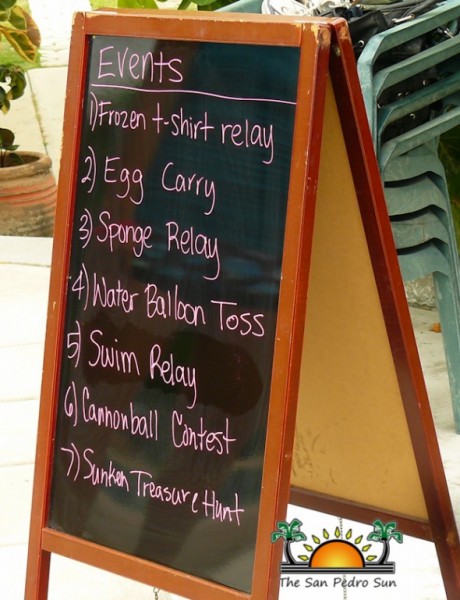 Events
1) Frozen t-shirt relay
2) Egg Carry
3) Sponge Relay
4) Water Balloon Toss
5) Swim Relay
6) Cannonball Contest
7) Sunken Treasure Hunt
The San Pedro Sun